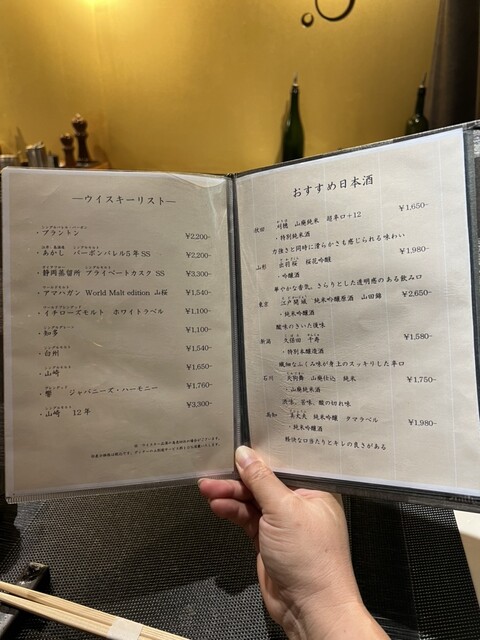 ―ウイスキーリスト―
シングルバレル・バーボン
・ブラントン ¥2,200-
・あかし バーボンバレル5年 SS ¥2,200-
・静岡蒸留所 プライベートカスク SS ¥3,300-
・アマハガン World Malt edition 山桜 ¥1,540-
・イチローズモルト ホワイトラベル ¥1,100-
シングルグレーン
・知多 ¥1,100-
シングルモルト
・白州 ¥1,540-
シングルモルト
・山崎 ¥1,650-
ブレンデッド
・響 ジャパニーズ・ハーモニー ¥1,760-
シングルモルト
・山崎 12年 ¥3,300-
おすすめ日本酒
秋田 刈穂 山廃純米 超辛口+12 ¥1,650-
・特別純米酒
力強さと同時に滑らかさも感じられる味わい
山形 出羽桜 桜花吟醸 ¥1,980-
・吟醸酒
華やかな香気、さらりとした透明感のある飲み口
東京 江戸開城 純米吟醸原酒 山田錦 ¥2,650-
・純米吟醸酒
酸味のきいた後味
新潟 久保田 千寿 ¥1,580-
・特別本醸造酒
繊細なふくみ味が身上のスッキリした辛口
石川 天狗舞 山廃仕込 純米 ¥1,750-
・山廃純米酒
渋味、苦味、酸の切れ味
高知 美丈夫 純米吟醸 タマラベル ¥1,980-
・純米吟醸酒
軽快な口当たりとキレの良さがある